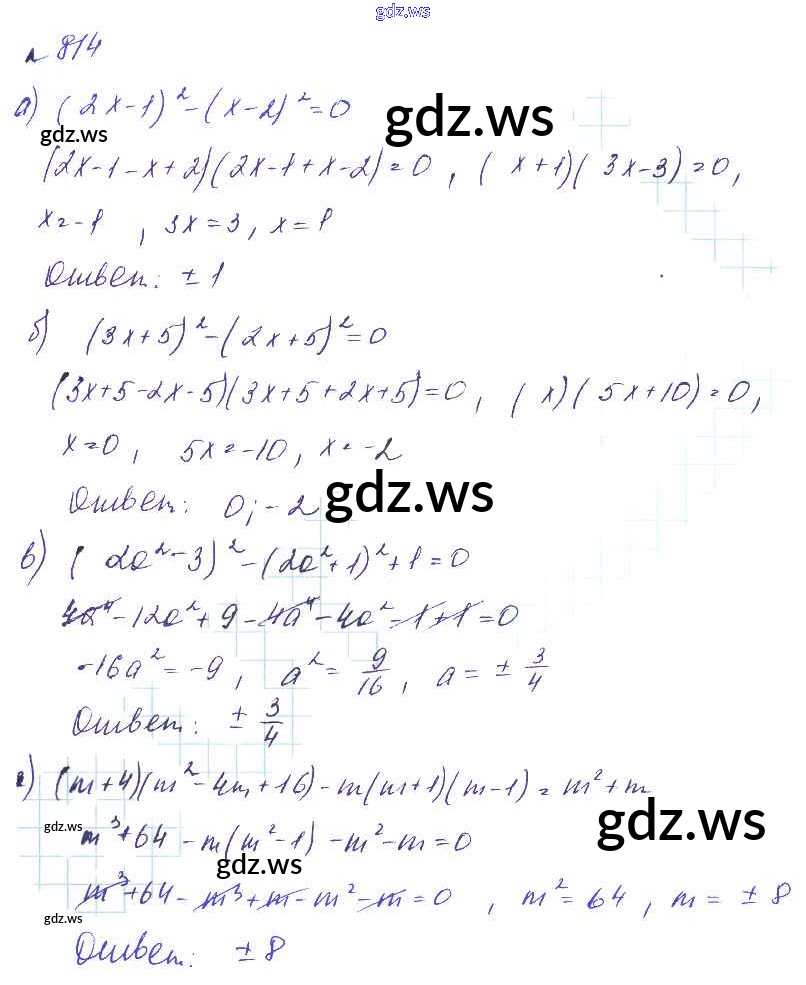 gdz.ws
№ 814
а) (2x-1)² - (x-2)² = 0
gdz.ws
gdz.ws
(2x-1-x+2)(2x-1+x-2) = 0, (x+1)(3x-3) = 0,
x = -1, 3x = 3, x = 1
Ответ: ± 1
б) (3x+5)² - (2x+5)² = 0
(3x+5-2x-5)(3x+5+2x+5) = 0, (x)(5x+10) = 0,
x = 0, 5x = -10, x = -2
gdz.ws
Ответ: 0; -2
в) (2a²-3)² - (2a²+1)² + 1 = 0
4a⁴ - 12a² + 9 - 4a⁴ - 4a² - 1 + 1 = 0
-16a² = -9, a² = 9/16, a = ± 3/4
Ответ: ± 3/4
г) (m+4)(m²-4m+16) - m(m+1)(m-1) = m² + m
gdz.ws
gdz.ws
m³ + 64 - m(m²-1) - m² - m = 0
gdz.ws
m³ + 64 - m³ + m - m² - m = 0, m² = 64, m = ± 8
gdz.ws
Ответ: ± 8